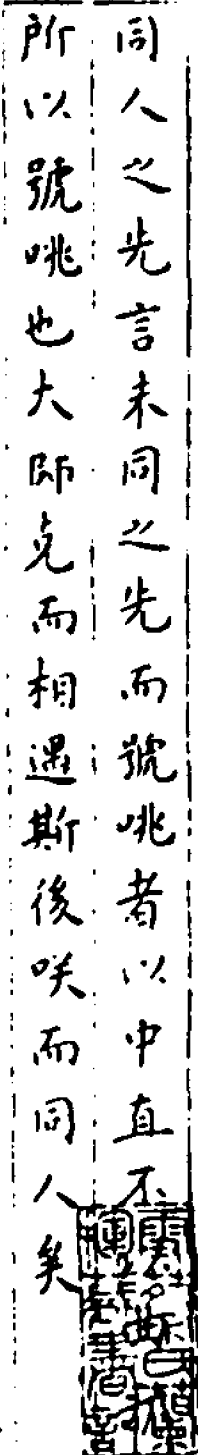 同人之先言未同之先而號咷者以中直不
所以號咷也大師克而相遇斯後咲而同人矣